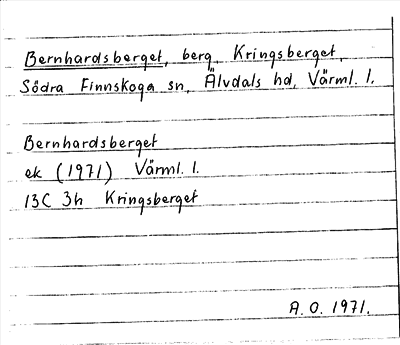 Bernhardsberget, berg, Kringsberget,
Södra Finnskoga sn, Älvdals hd, Värml. l.
Bernhardsberget
ek (1971) Värml. l.
13C 3h Kringsberget
A. O. 1971.